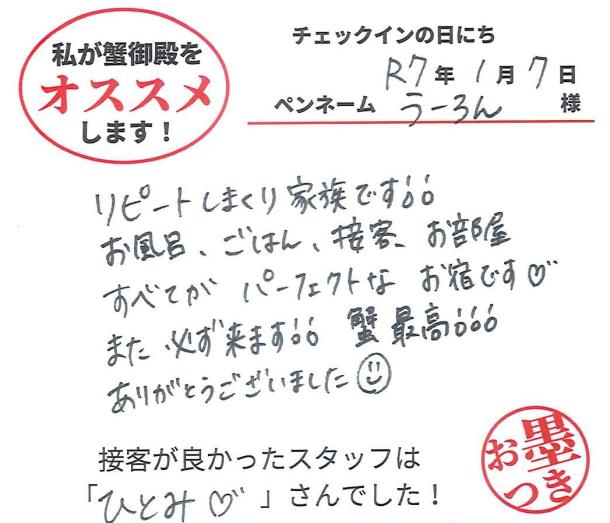 私が蟹御殿を
オススメ
します！
チェックインの日にち
R7年1月7日
ペンネーム うーろん 様
リピートしまくり家族です!!
お風呂、ごはん、接客、お部屋
すべてが パーフェクトな お宿です♡
また 必ず来ます!! 蟹 最高!!!
ありがとうございました☺
接客が良かったスタッフは
「ひとみ♡」さんでした！
お墨つき